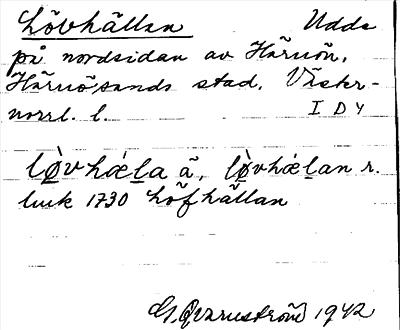 Lövhällan Udde
på nordsidan av Härnön,
Härnösands stad, Väster-
norrl. l. I D 4
lø̀vhǽl̠a ä̃, lø̀vhǽl̠an r.
luk 1730 Löfhällan
G. Qvarnström 1942